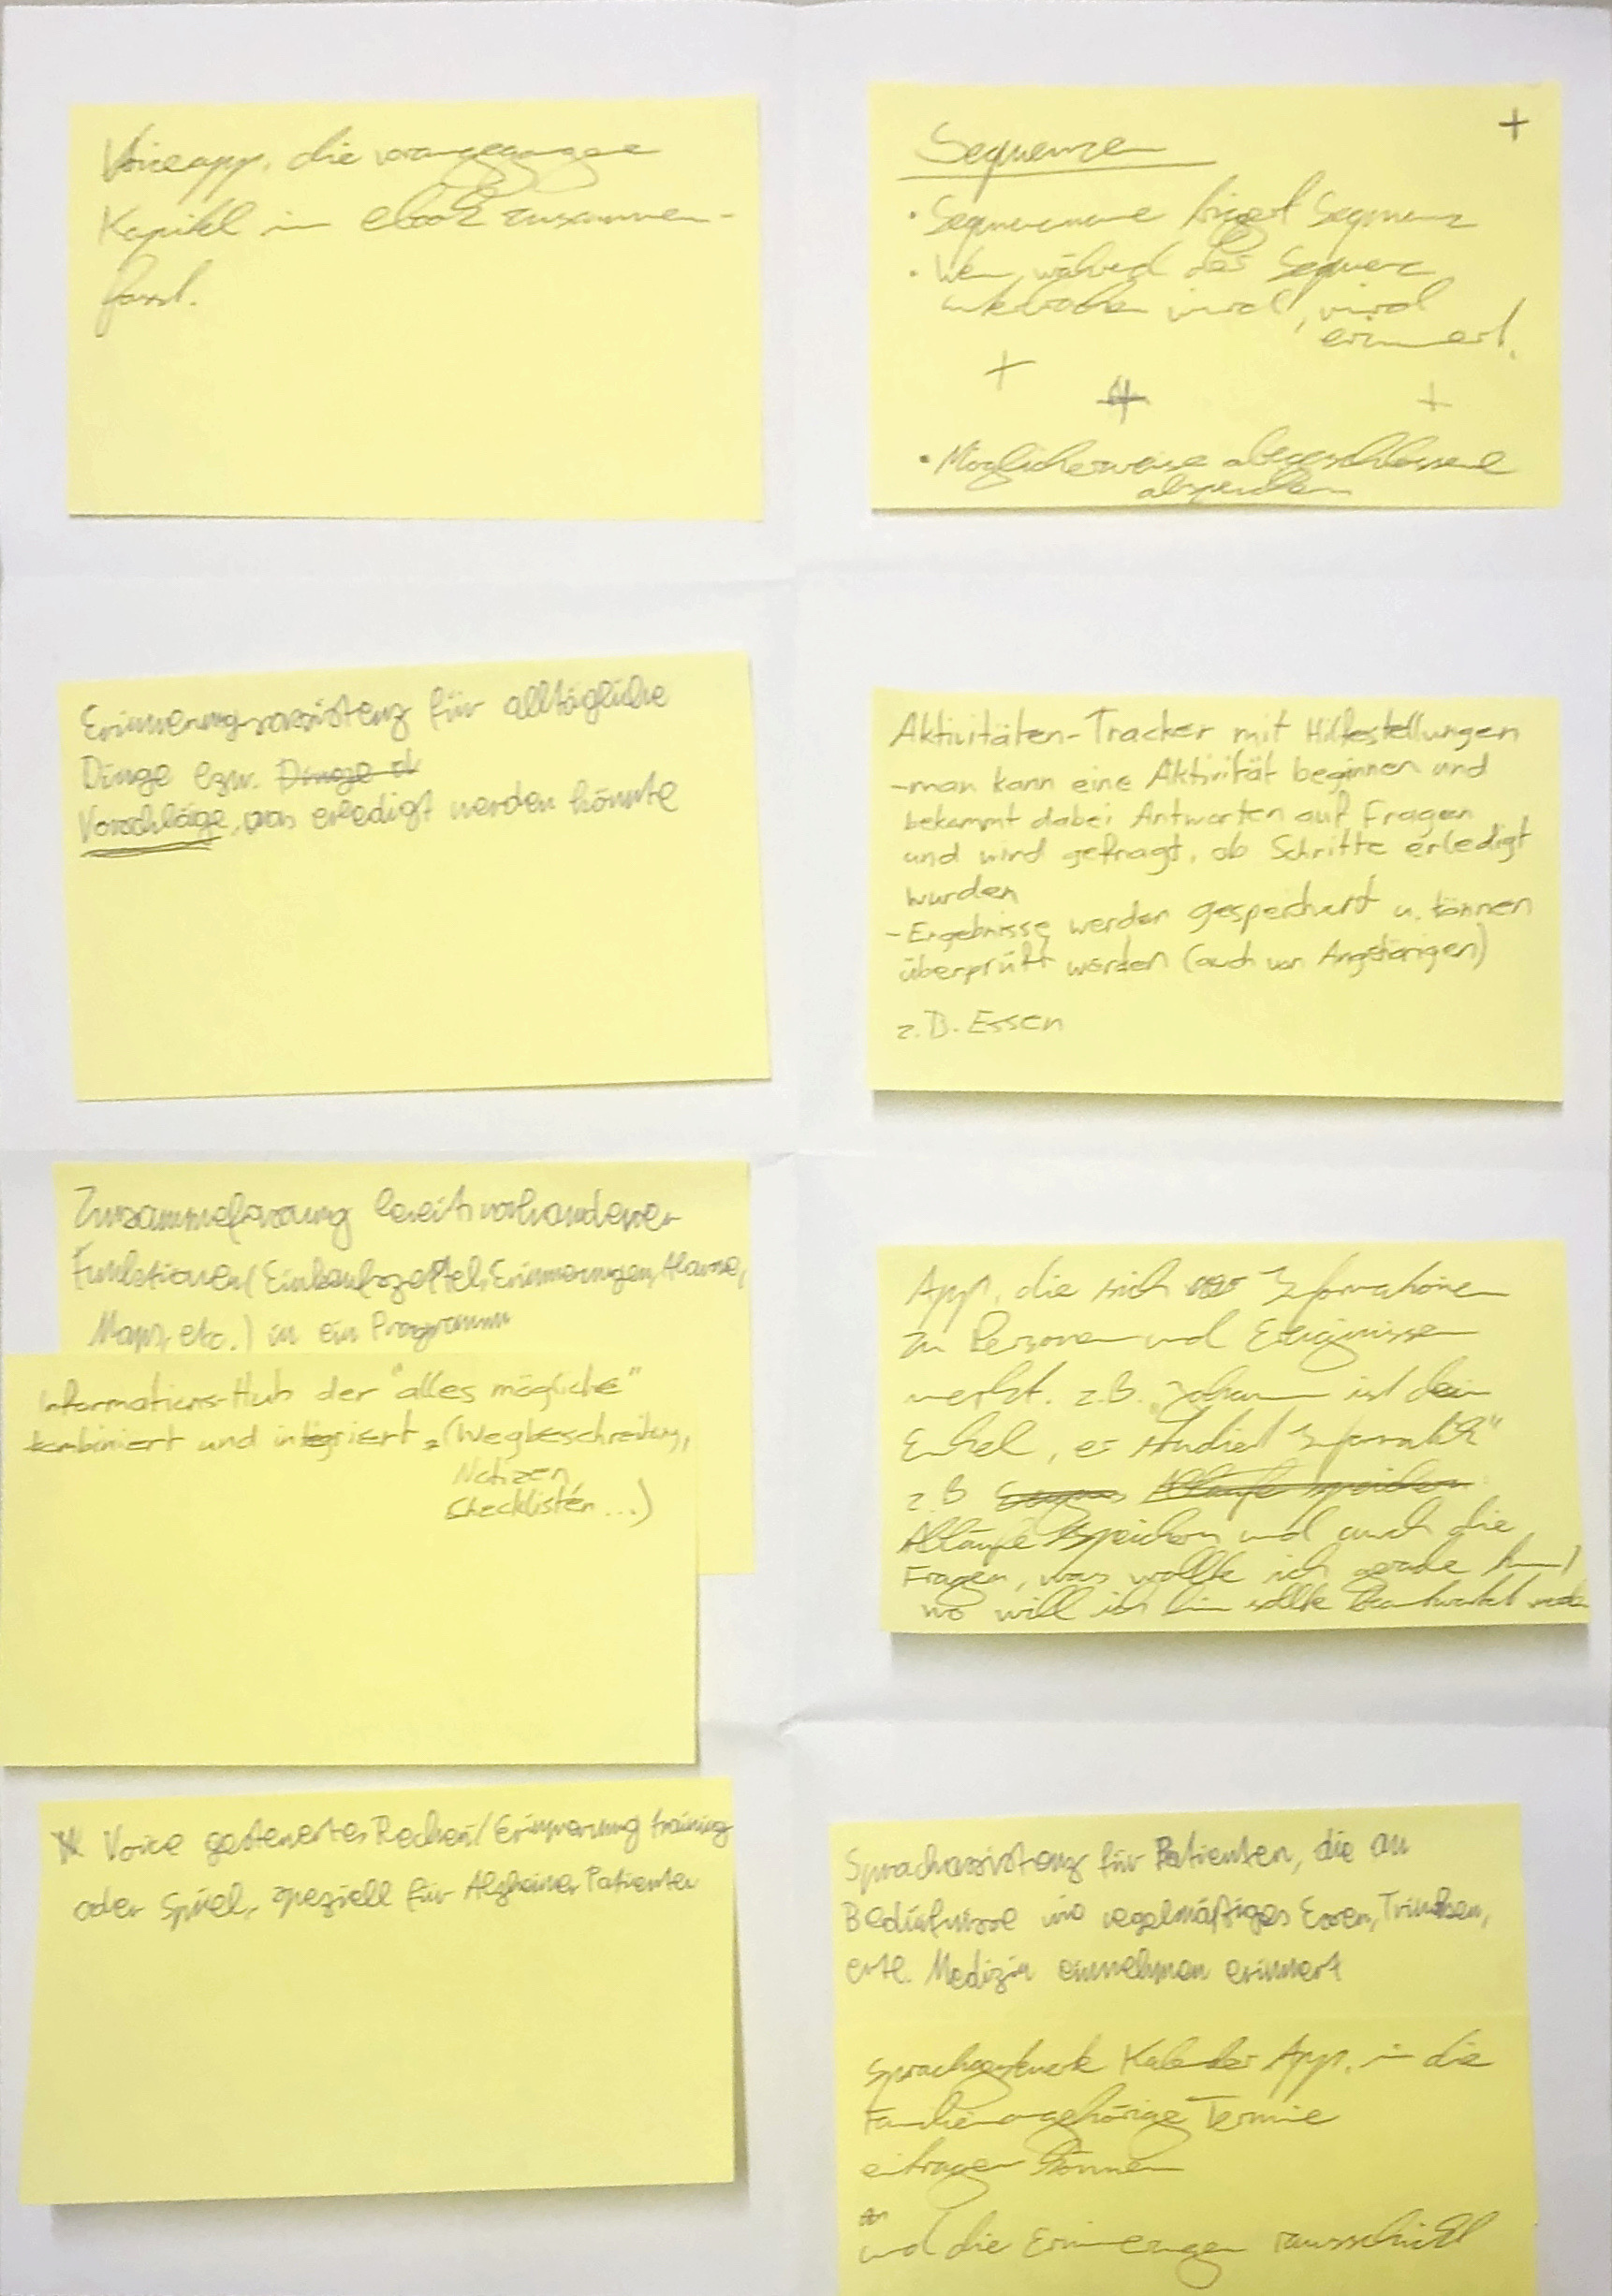 Voiceapp, die vorangegangene
Kapitel in ebook zusammen-
fasst.
Sequenzen
+
• Sequenzname triggert Sequenz
• Wenn während der Sequenz
unterbrochen wird, wird
erinnert.
+ +
• Möglicherweise abgeschlossene
abspeichern
Erinnerungsassistenz für alltägliche
Dinge bzw.
Vorschläge, was erledigt werden könnte
Aktivitäten-Tracker mit Hilfestellungen
- man kann eine Aktivität beginnen und
bekommt dabei Antworten auf Fragen
und wird gefragt, ob Schritte erledigt
wurden
- Ergebnisse werden gespeichert u. können
überprüft werden (auch von Angehörigen)
z.B. Essen
Zusammefassung bereits vorhandener
Funktionen (Einkaufszettel, Erinnerungen, Alarme,
Maps, etc.) in ein Programm
Informations-Hub der "alles mögliche"
kombiniert und integriert (Wegbeschreibung,
Notizen
Checklisten ...)
App, die sich Informationen
zu Personen und Ereignissen
merkt. z.B. "Johann ist dein
Enkel, er studiert Informatik"
z.B
Abläufe speichern und auch die
Fragen, was wollte ich gerade tun /
wo will ich hin sollte beantwortet werden
Voice gesteuertes Rechen/Erinnerung training
oder Spiel, speziell für Alzheimer Patienten
Sprachassistenz für Patienten, die an
Bedürfnisse wie regelmäßiges Essen, Trinken,
evtl. Medizin einnehmen erinnert
Sprachgesteuerte Kalender App, in die
Familienangehörige Termine
eintragen können
und die Erinnerungen rausschickt